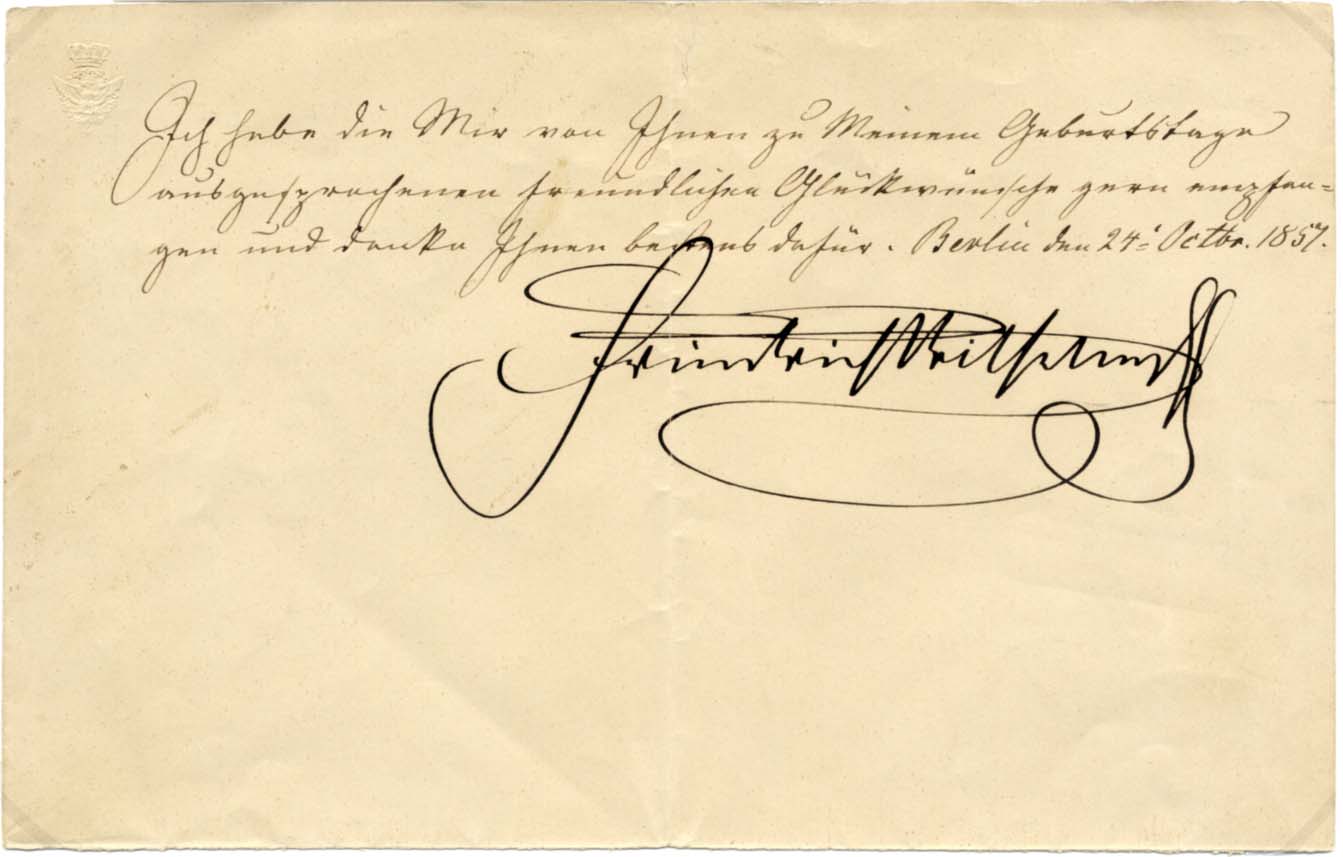 Ich habe die Mir von Ihnen zu Meinem Geburtstage
ausgesprochenen freundlichen Glückwünsche gern empfan=
gen und danke Ihnen bestens dafür. Berlin den 24. Octbr. 1857.
Friedrich Wilhelm